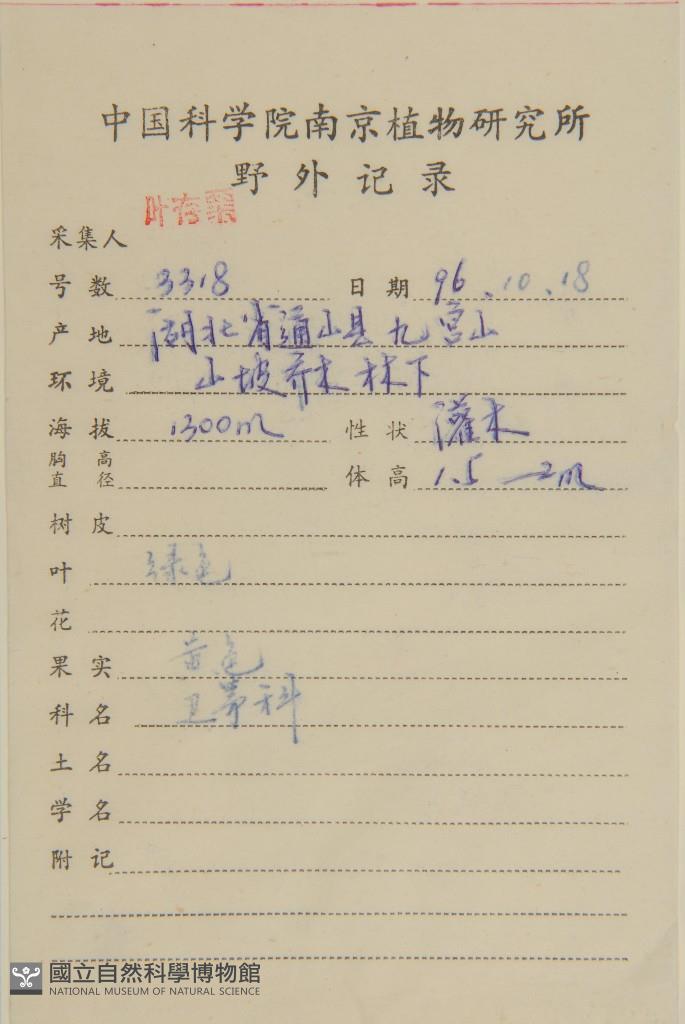 中国科学院南京植物研究所
野外记录
采集人 叶存粟
号数 3318 日期 96.10.18
产地 湖北省通山县九宫山
环境 山坡乔木林下
海拔 1300m 性状 灌木
胸高直径 体高 1.5—2m
树皮
叶 绿色
花
果实 黄色
科名 卫茅科
土名
学名
附记
國立自然科學博物館
NATIONAL MUSEUM OF NATURAL SCIENCE